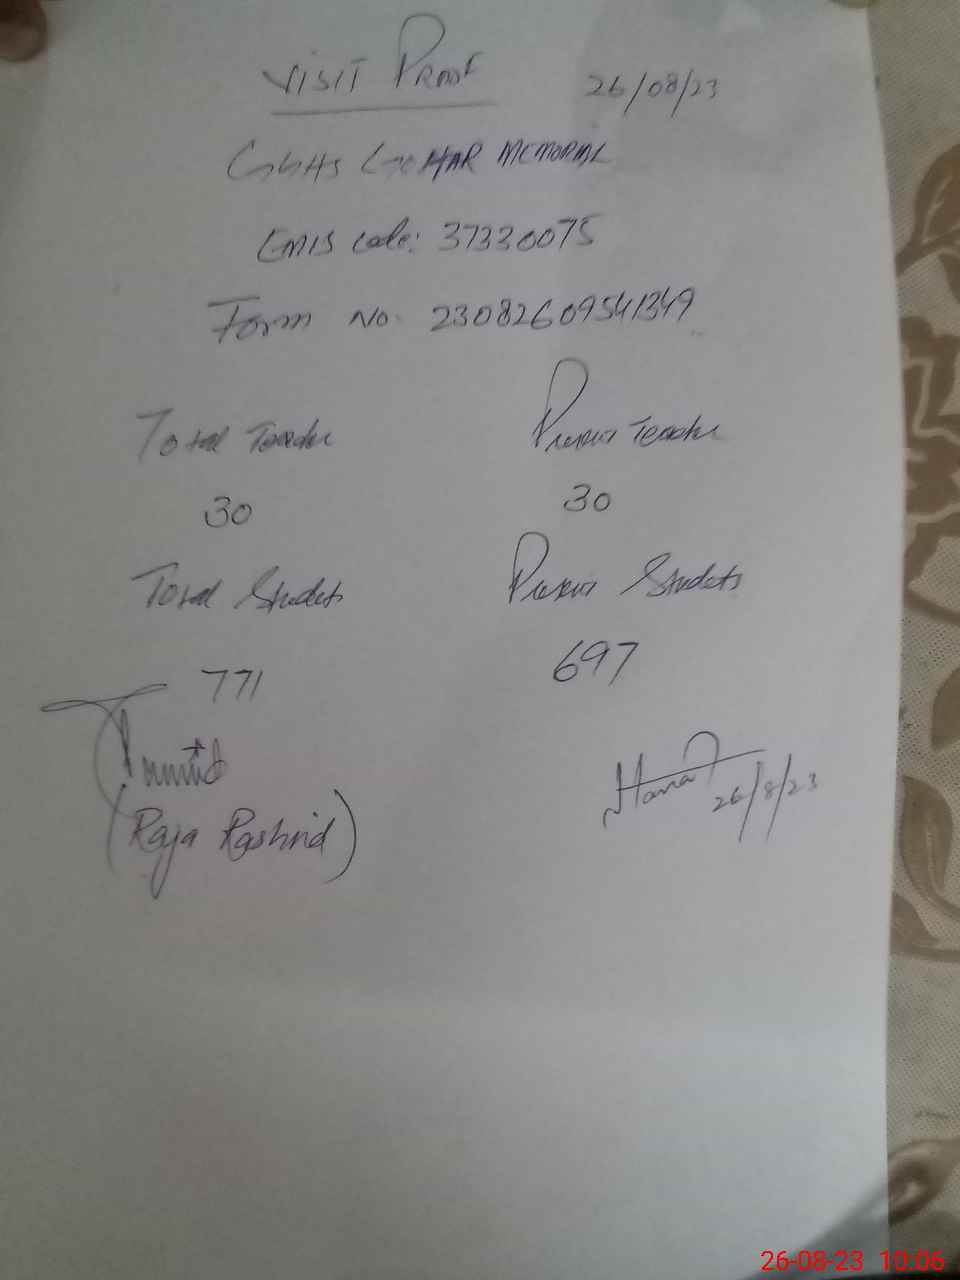 VISIT PROOF 26/08/23
GGHS GOHAR MEMORIAL
EMIS Code: 37330075
Form No. 23082609541349
Total Teacher Present Teacher
30 30
Total Students Present Students
771 697
(Raja Rashid) 26/8/23
26-08-23 10:06